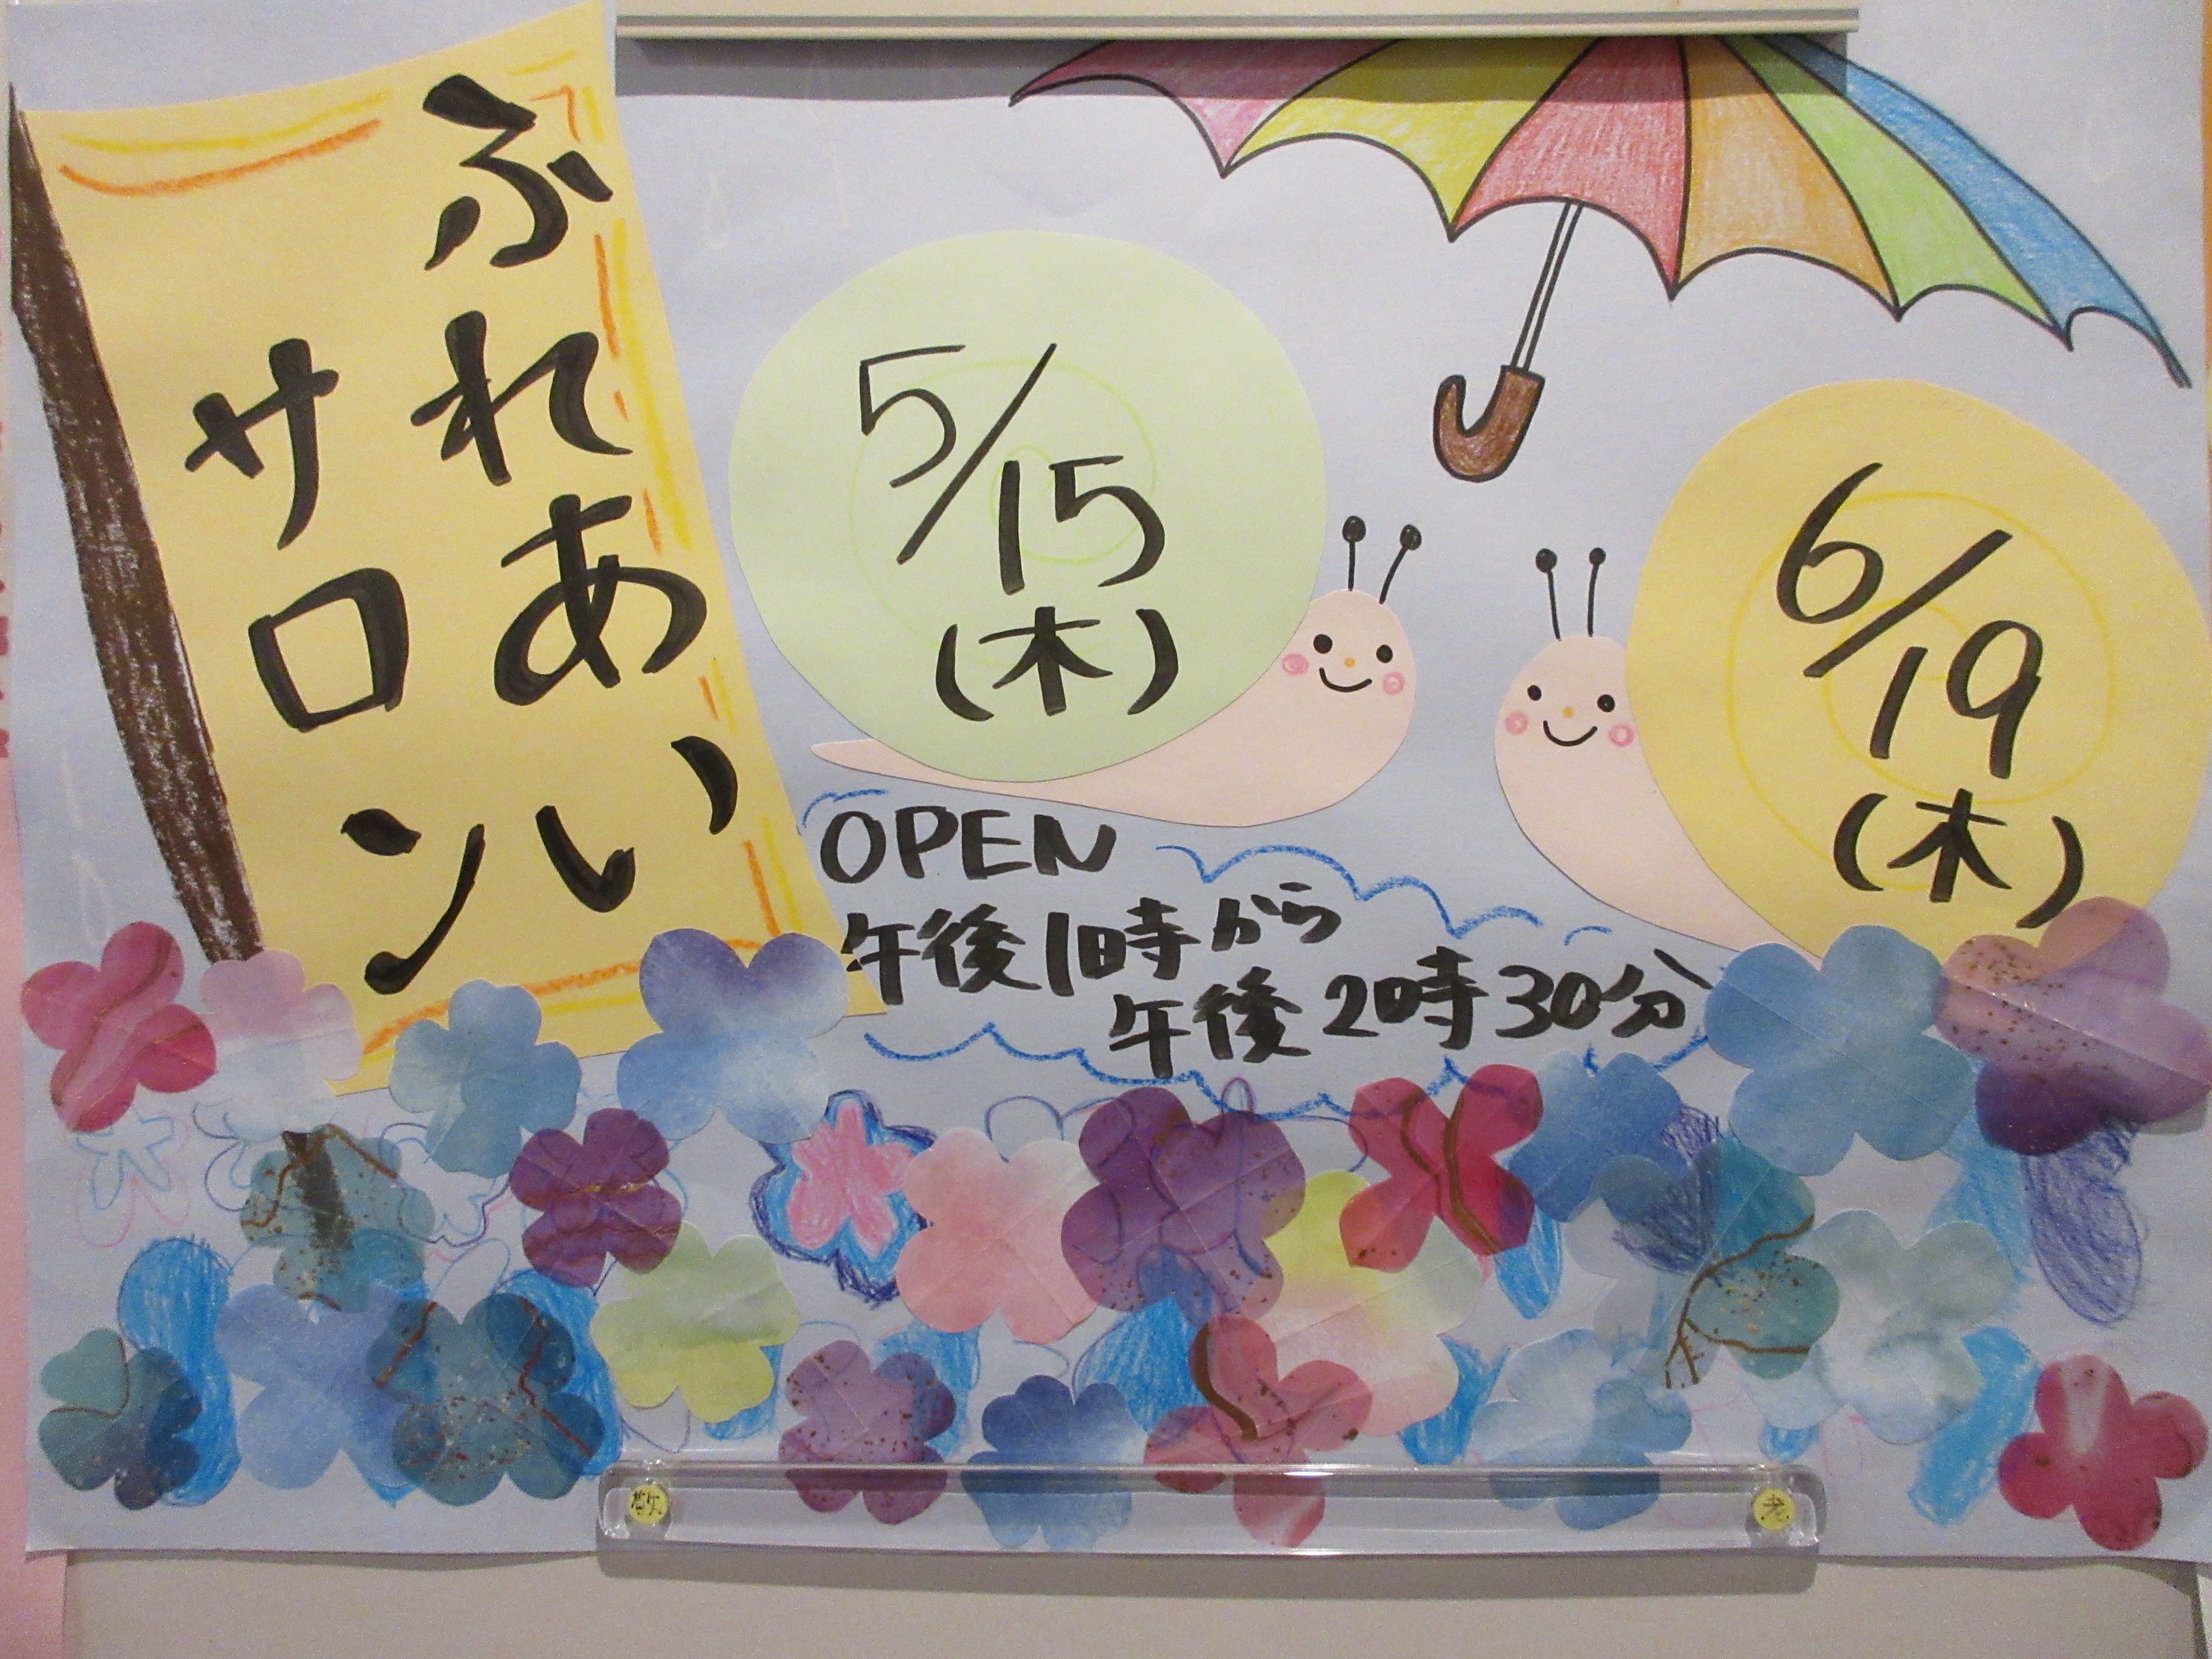 ふれあい
サロン
5/15
(木)
6/19
(木)
OPEN
午後1時から
午後2時30分